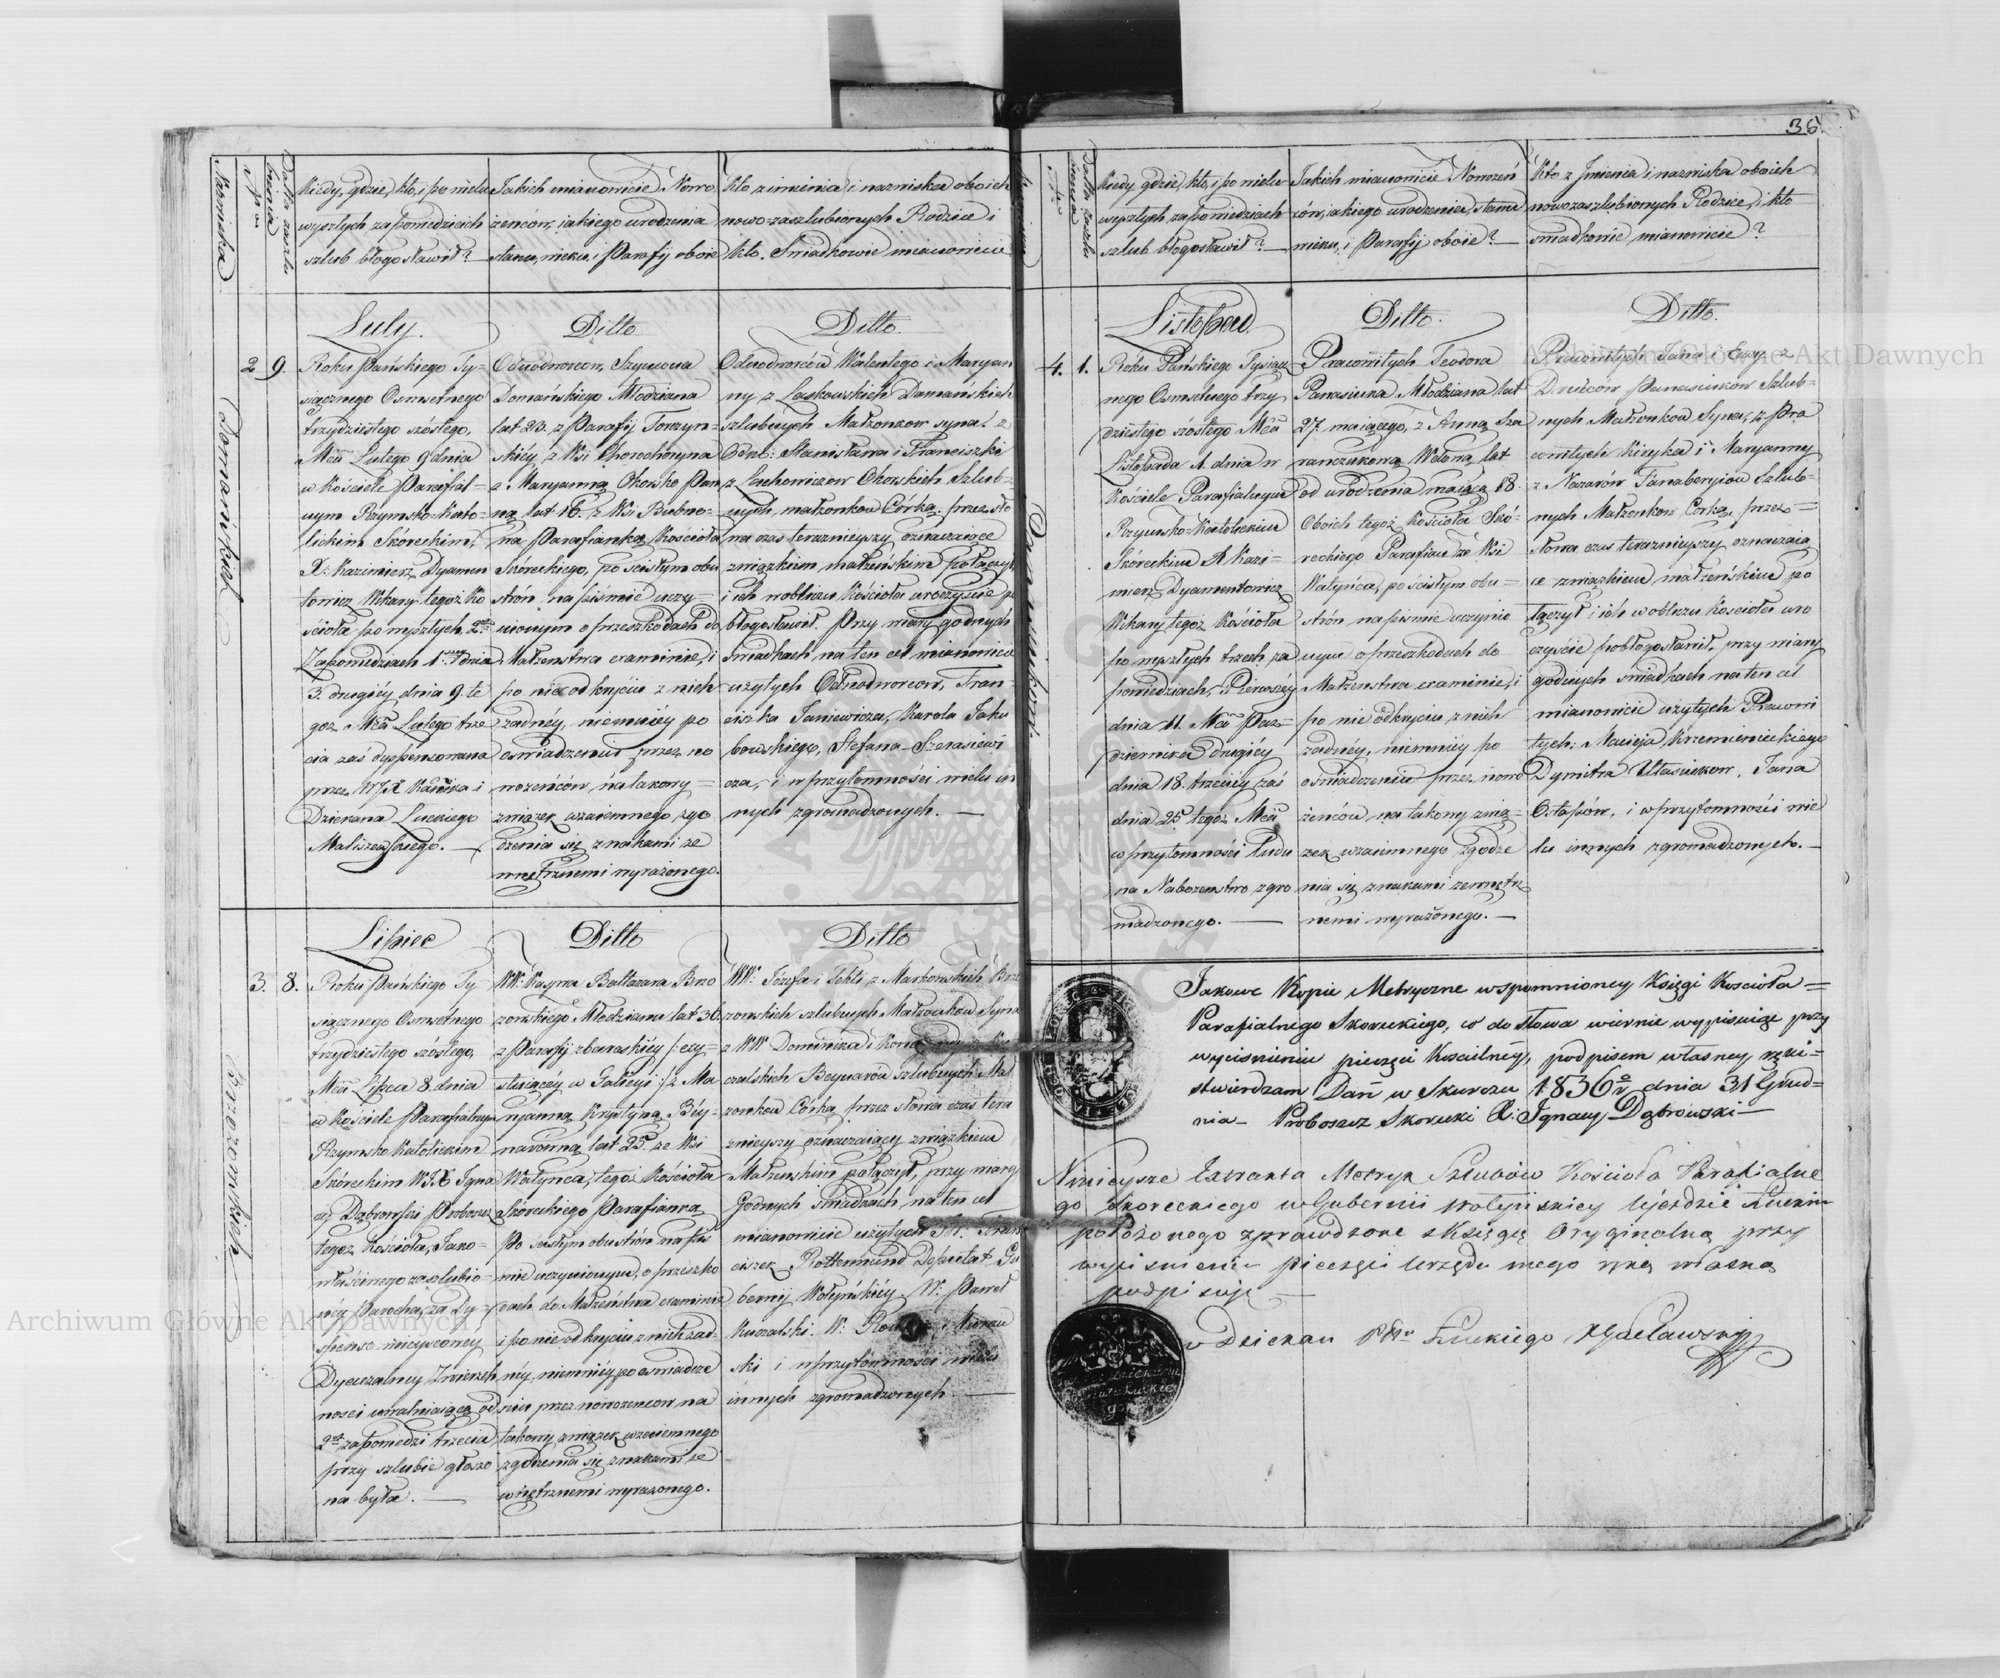 36.
Nazwiska
Kiedy, gdzie, kto, i po wielu
wyszłych zapowiedziach
szlub błogosławił?
Jakich mianowicie Nowo
zeńców, iakiego urodzenia
stanu, wieku, i Parafij oboie
Kto z imienia i nazwiska oboich
nowo-zaszlubionych Rodzice i
kto Swiadkowie mianowicie
Domańskich
2 9.
Luty.
Roku Pańskiego Ty-
siącznego Osmsetnego
trzydziestego szóstego,
Mca Lutego 9 dnia
w Kościele Parafial-
nym Rzymsko-Kato-
lickim Skóreckim,
X: Kazimierz Dyamen
towicz Wikary tegoż Ko
ścioła po wyszłych 2ch
Zapowiedziach 1szey dnia
3. drugiéy dnia 9 te
goż Mca Lutego trze
cia zaś dyspensowana
przez
Dziekana Luckiego
Maliszewskiego.
Ditto
Odnodworcow, Szymona
Domańskiego Młodziana
lat 23. z Parafij Torczyn-
skiéy, z Wsi Chorochoryna
z Maryanną Okorsko Pan
ną lat 16. z Wsi Bubno-
na Parafianką Kościoła
Skóreckiego, po ścisłym obu
stron na piśmie uczy-
nionym o przeszkodach do
Małżenstwa examinie, i
po nie odkryciu z nich
zadnéy, niemniéy po
oswiadczeniu przez no
wozeńców na takowy
związek wzaiemnego zgo
dzenia się znakami ze
wnętrznemi wyrażonego.
Ditto.
Odnodworców Walentego i Maryan
ny z Laskowskich Domańskich
szlubnych Małżonkow syna: z
Odno: Stanisława i Franciszki
z Lachowiczow Okorskich Szlub-
nych małżonkow Córką, przez sło
na czas teraznieyszy oznaczaiące
związkiem małżeńskim połączył,
i ich w obliczu Kościoła uroczyscie po
błogosławił. Przy wiary godnych
Swiadkach na ten cel mianowicie
użytych Odnodworcow, Fran-
ciszka Janiewicza, Karola Jaku
bowskiego, Stefana Szerasiewi
cza, i w przytomności wielu in
nych zgromadzonych.
Brzozowskich
3. 8.
Lipiec
Roku Pańskiego Ty
siącznego Osmsetnego
trzydziestego szóstego,
Mca Lipca 8. dnia
w Kościele Parafialnym
Rzymsko Katolickim
Skóreckim WJX Igna
cy Dąbrowski Proboszcz
tegoż Kościoła, Jako
właściwego zaszlubio-
néy Parocha, za Dy-
spensą mieyscowey
Dyecezalney Zwierzch
nosci uwalniaiącą od
2ch zapowiedzi trzecia
przy szlubie głoszo
na była.
Ditto
WW: Kaspra Baltazara Brzo
zowskiego Młodziana lat 36.
z Parafij zbaraskiéy
w Galicyi z Ma
ryanną Krystyną Béy-
narowną lat 25. ze Wsi
Watynca, tegoż Kościoła
Skóreckiego Parafianką
Po ścisłym obustrón na piś
mie uczynionym, o przeszko
dach do Małżeństwa examinie
i po nie odkryciu z nich zad-
néy, niemniéy po oswiadcze
niu przez nowozencow na
takowy związek wzaiemnego
zgodzenia się znakami ze
wnętrznemi wyrażonego.
Ditto
WW: Józefa i Tekli z Markowskich Brzo
zowskich szlubnych Małżonków Syna
z WW Dominika i
Beynarów szlubnych Mał
żonkow Córką przez słowa czas tera
znieyszy oznaczaiący związkiem
Małżenskim połączył, przy wiary
Godnych Swiadkach na ten cel
mianowicie użytych
ciszek Rottermund Deputat Gu
bernij Wołyńskiéy W: Paweł
Kuczalski. W:
ski i w przytomności wielu
innych zgromadzonych.
Kiedy, gdzie, kto, i po wielu
wyszłych zapowiedziach
szlub błogosławił?
Jakich mianowicie Nowozeń
ców, iakiego urodzenia, stanu
wieku, i Parafij oboie?
Kto z Imienia i nazwiska oboich
nowozaszlubionych Rodzice, i kto
swiadkowie mianowicie?
Panasiukow
4. 1.
Listopad
Roku Pańskiego Tysiącz
nego Osmsetnego trzy
dziestego szóstego Mca
Listopada 1. dnia w
Kościele Parafialnym
Rzymsko-Katolickim
Skóreckim X Kazi-
mierz Dyamentowicz
Wikary tegoż Kościoła
po wyszłych trzech za
powiedziach, Pierwszéy
dnia 11. Mca Paz-
dziernika drugiéy
dnia 18. trzeciéy zaś
dnia 25 tegoż Mca
w przytomności Ludu
na Nabozenstwo zgro
madzonego.
Ditto.
Pracowitych Teodora
Panasiuka Młodziana, lat
27. maiącego, z Anną Sza
ranczukową Wdową, lat
od urodzenia maiącą 18.
Oboich tegoż Kościoła Skó-
reckiego Parafian ze Wsi
Watynca, po ścisłym obu-
strón na piśmie uczynio
nym o przeszkodach do
Małżenstwa examinie, i
po nie odkryciu z nich
zadnéy, niemniéy po
oświadczeniu przez nowo
żeńców na takowy zwią-
zek wzaiemnego zgodze
nia się znakami zewnętrz
nemi wyrażonego.
Ditto.
Pracowitych Jana i Ewy z
Panasiukow Szlub-
nych Małżonkow Syna, z Pra
cowitych Kiryka i Maryanny
z Nazarów Szlub-
nych Małżonkow Córką, przez
słowa czas teraznieyszy oznaczaią
ce związkiem małżeńskim po
łączył, i ich w obliczu Kościoła uro
czyście pobłogosławił, przy wiary
godnych swiadkach na ten cel
mianowicie użytych Pracowi
tych: Macieja Krzemienieckiego
Dymitra Ułasiukow, Jana
Ostapów, i w przytomności wie
lu innych zgromadzonych.
Jakowe Kopie Metryczne wspomnioney Księgi Kościoła
Parafialnego Skoreckiego, co do słowa wiernie wypisuię przy
wyciśnieniu pieczęci Kościelnéy, podpisem własney ręki
stwierdzam Dań w Skurczu 1836 dnia 31 Grud-
nia Proboszcz Skorecki X: Ignacy Dąbrowski
Ninieysze Extrakta Metryk Szlubów Kościoła Parafialne
go Skoreckiego w Gubernii Wołyńskiey Ujezdzie Łuckim
położonego zprawdzone z Księgą Oryginalną przy
wyciśnieniu pieczęci Urzędu mego ręką własną
podpisuję
Dziekan Łuckiego
Archiwum Główne Akt Dawnych
Archiwum Główne Akt Dawnych